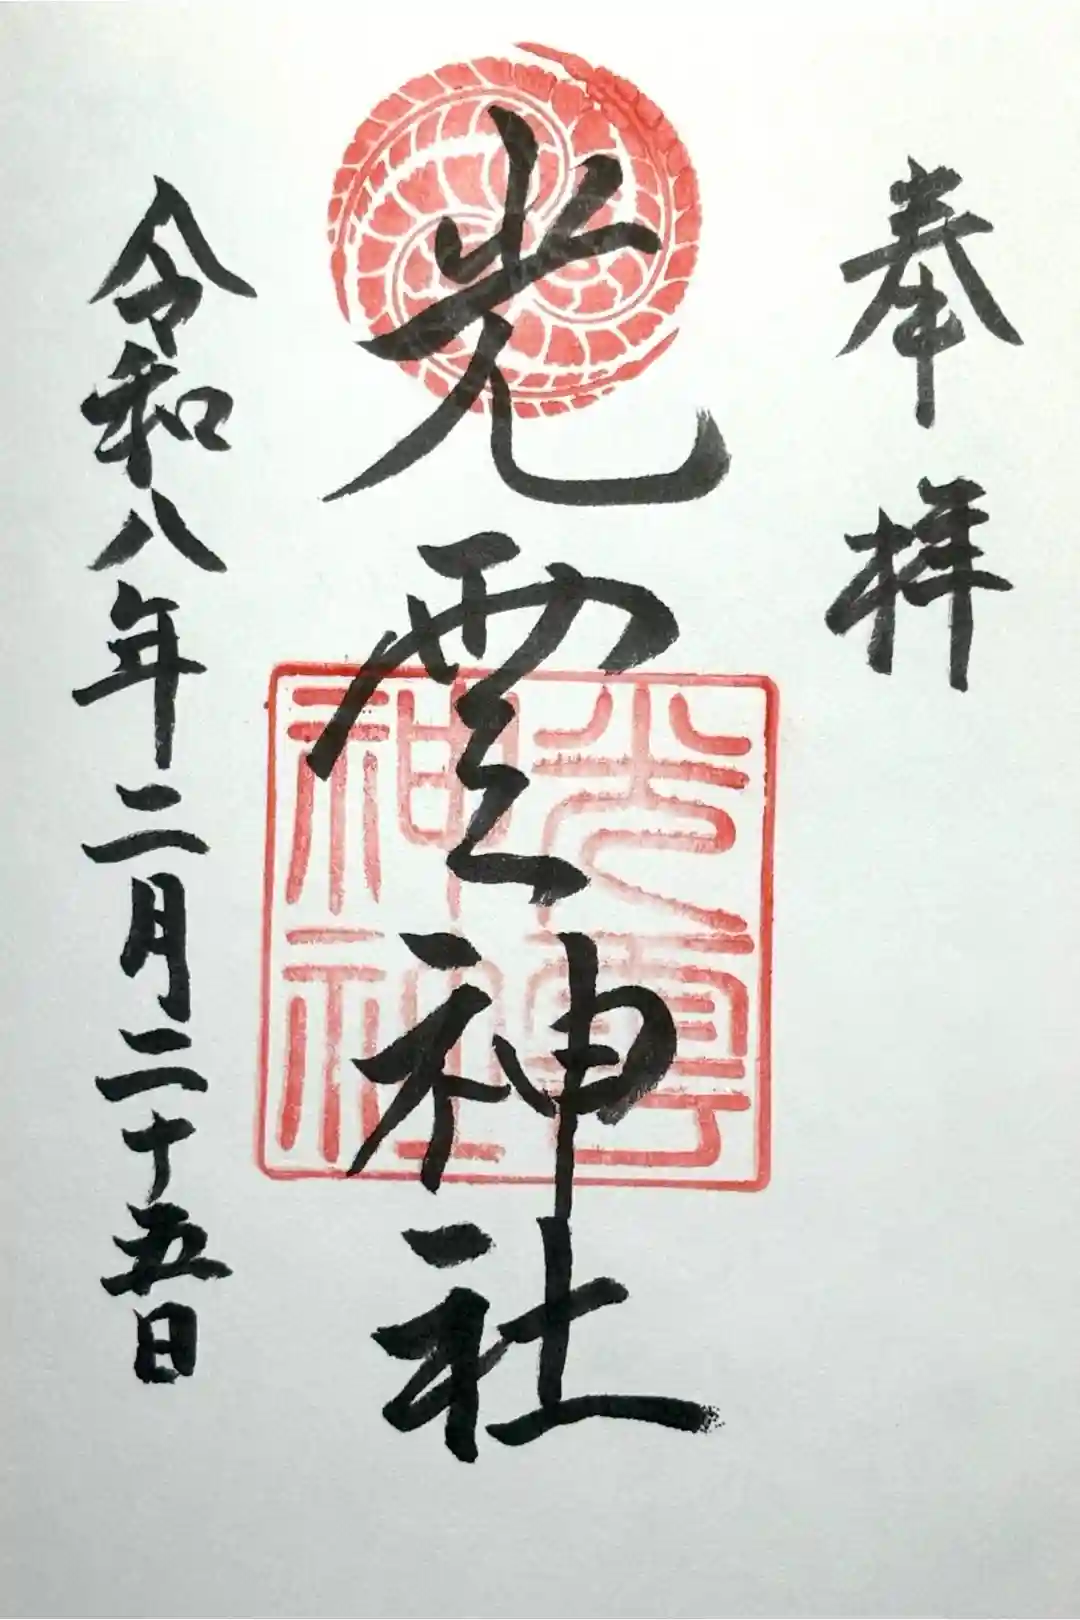 奉拝
光雲神社
光雲神社
令和八年二月二十五日